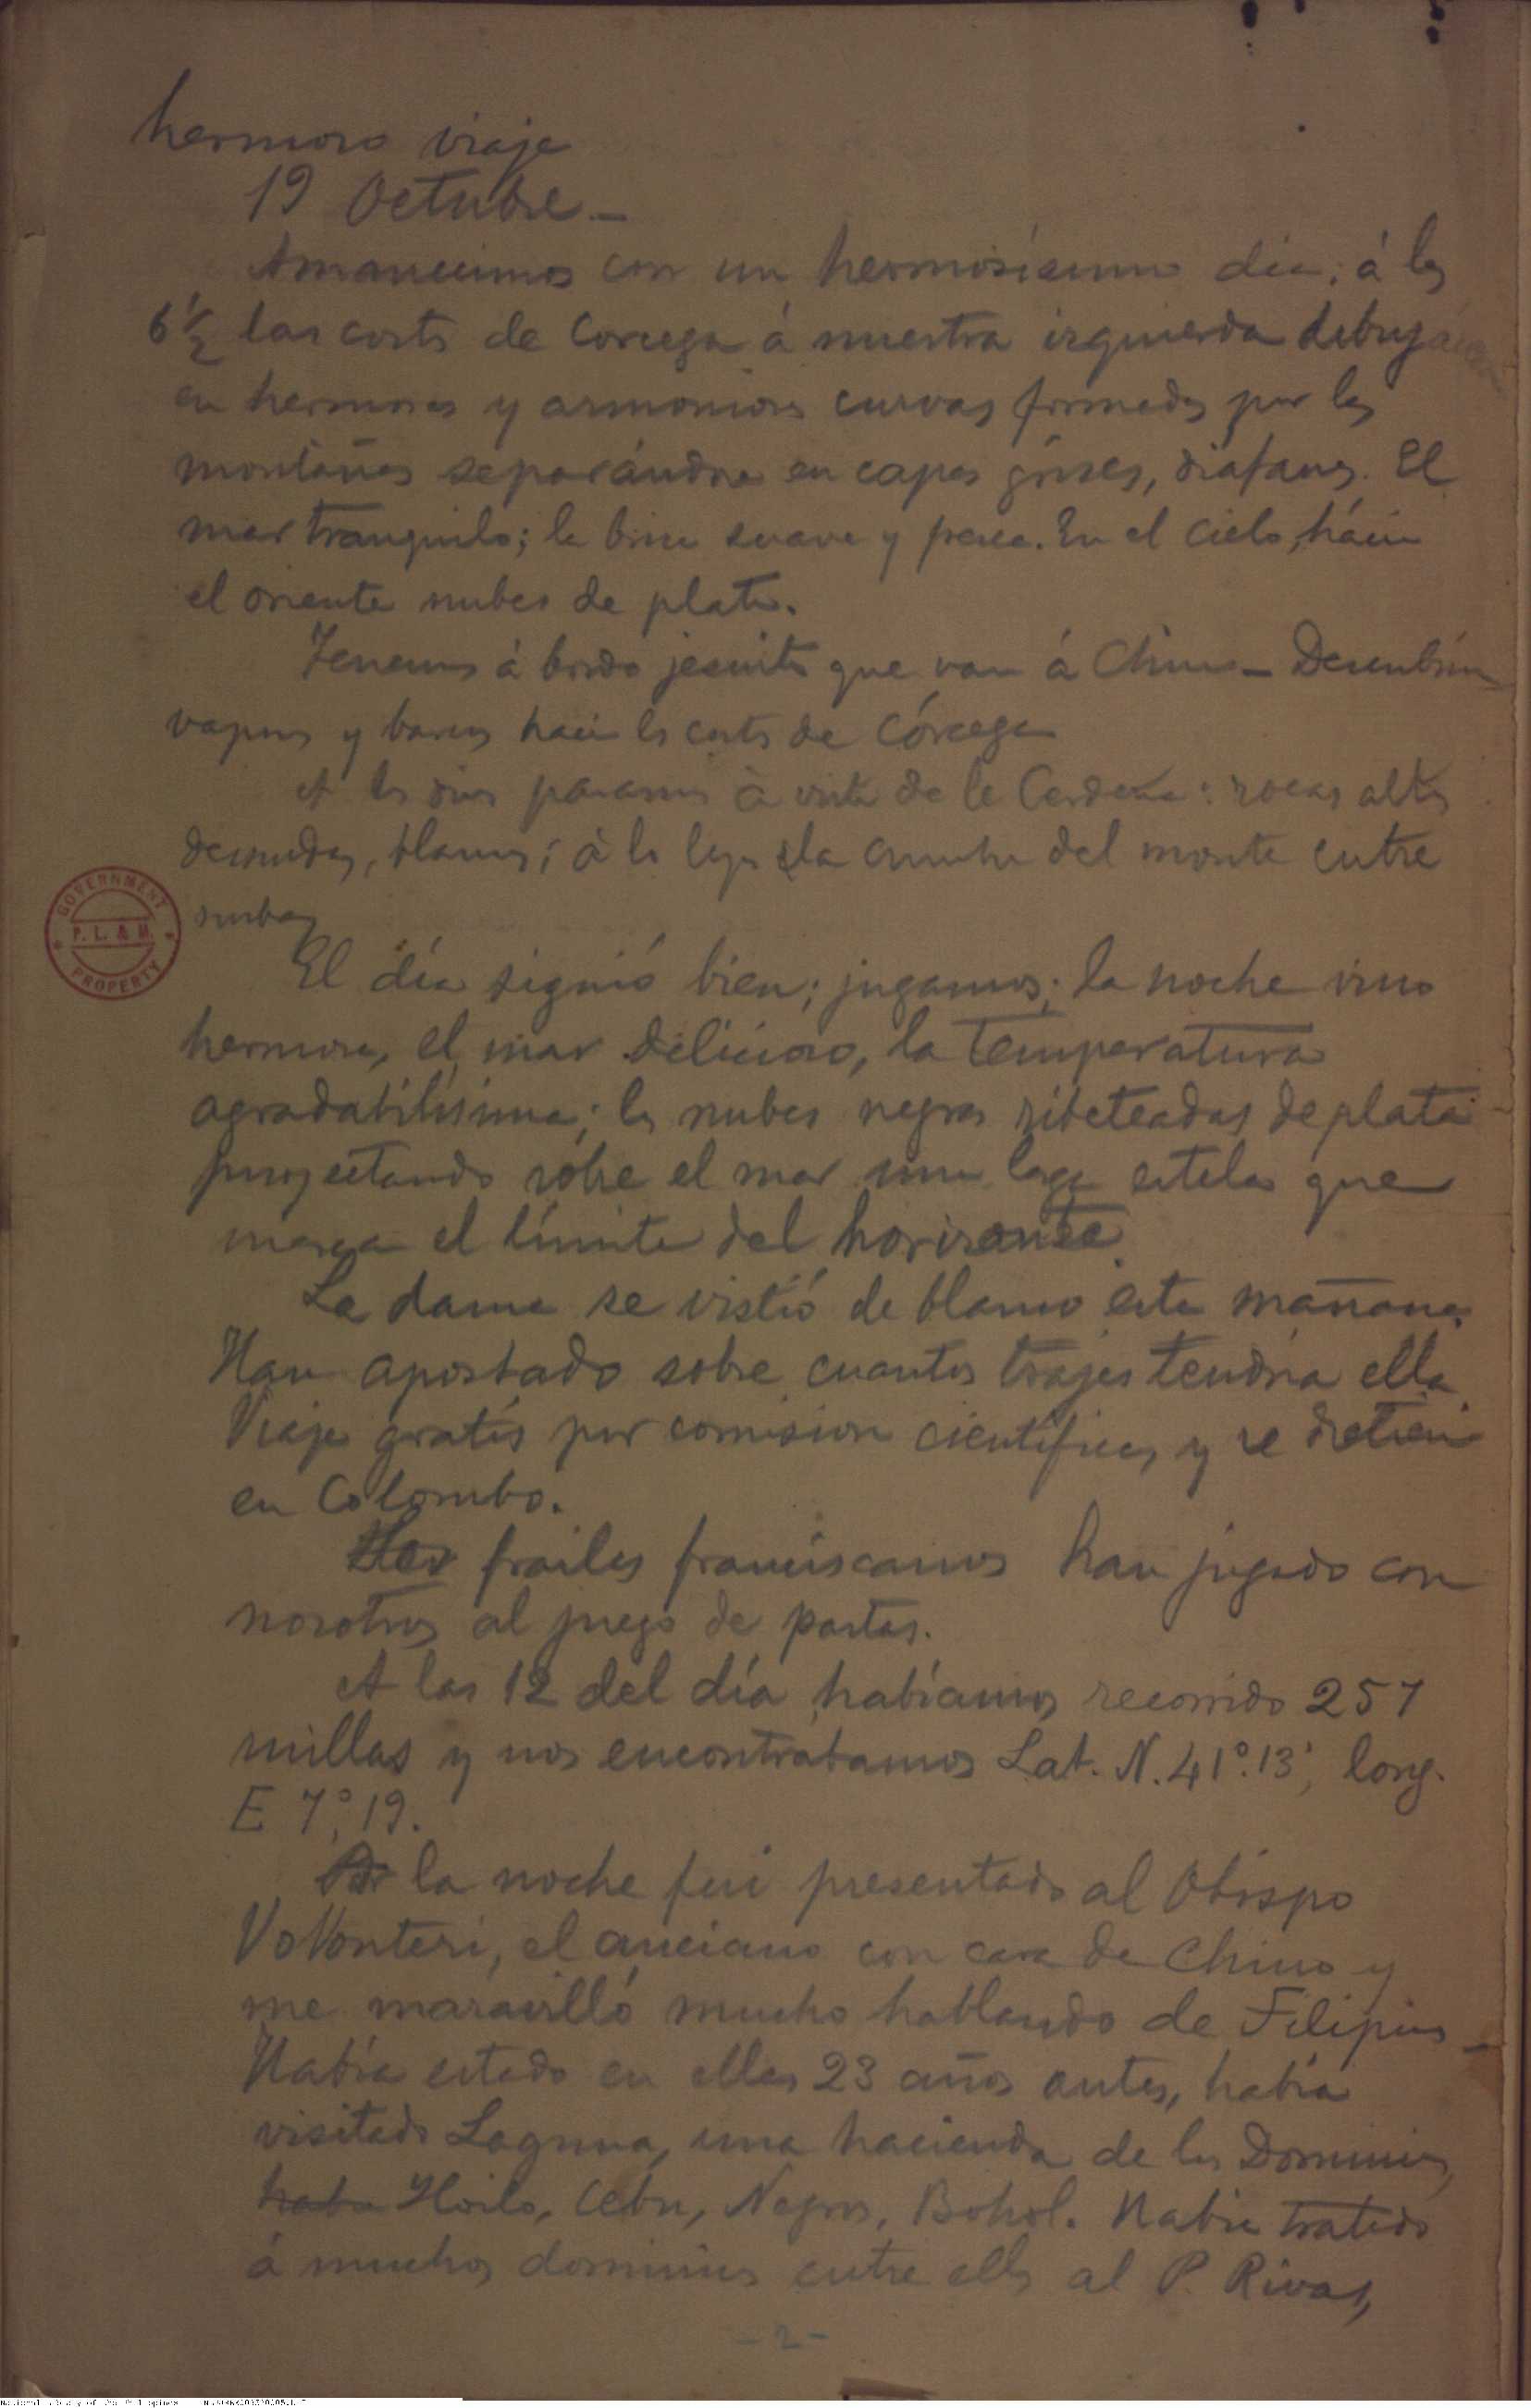 hermoso viaje
19 Octubre.—
Amanecimos con un hermosísimo día; á las
6 1/2 las costas de Córcega á nuestra izquierda dibuján
en hermosas y armoniosas curvas formadas por las
montañas separándose en capas grises, diáfanas. El
mar tranquilo; la brisa suave y fresca. En el cielo, hácia
el oriente nubes de plata.
Tenemos á bordo jesuitas que van á China — Descubrimos
vapores y barcos hacia las costas de Córcega
A las dies pasamos á vista de la Cerdeña: rocas altas
desnudas, blancas; á lo lejos la cumbre del monte entre
nubes
GOVERNMENT
P. L. & M.
PROPERTY
El día siguió bien; jugamos; la noche vino
hermosa, el mar delicioso, la temperatura
agradabilísima; las nubes negras ribeteadas de plata
proyectando sobre el mar una larga estela que
marca el límite del horizonte.
La dama se vistió de blanco esta mañana.
Han apostado sobre cuantos trajes tendría ella
Viaja gratis por comision científica, y se detiene
en Colombo.
frailes franciscanos han jugado con
nosotros al juego de
A las 12 del día habíamos recorrido 257
millas y nos encontrabamos Lat. N. 41°.13', long.
E 7°,19.
la noche fuí presentado al Obispo
Volonteri, el anciano con cara de Chino y
me maravilló mucho hablando de Filipinas —
Había estado en ellas 23 años antes, había
visitado Laguna, una hacienda de los Dominicos,
había Iloilo, Cebu, Negros, Bohol. Había tratado
á muchos dominicos entre ellos al P. Rivas,
- 2 -
National Library of the Philippines